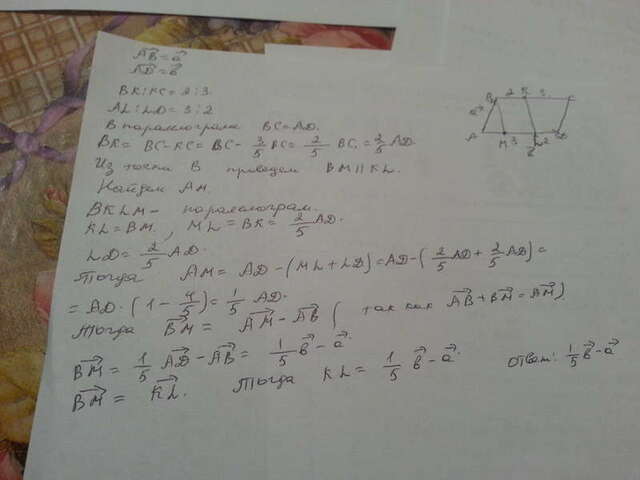 AB = a
AD = b
BK:KC = 2:3.
AL:LD = 3:2
В параллелограм BC = AD.
BK = BC - KC = BC - 3/5 BC = 2/5 BC = 2/5 AD.
Из точки B проведем BM || KL.
Найдем AM.
BKLM - параллелограм.
KL = BM, ML = BK = 2/5 AD.
LD = 2/5 AD.
Тогда AM = AD - (ML + LD) = AD - (2/5 AD + 2/5 AD) =
= AD · (1 - 4/5) = 1/5 AD.
Тогда BM = AM - AB (так как AB + BM = AM)
BM = 1/5 AD - AB = 1/5 b - a.
BM = KL. Тогда KL = 1/5 b - a. Ответ: 1/5 b - a
B 2 K 3 C
a
A M 3 L 2 D